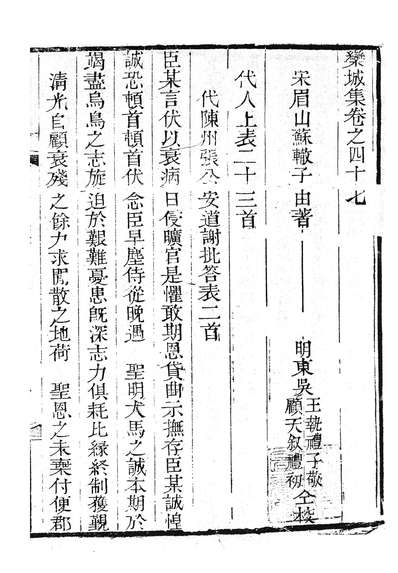 欒城集卷之四十七
宋眉山蘇轍子由著
明東吳王執禮子敬
顧天叙禮初仝校
代人上表二十三首
代陳州張公安道謝批答表二首
臣某言伏以衰病日侵曠官是懼敢期恩貸曲示撫存臣某誠惶
誠恐頓首頓首伏念臣早塵侍從晚遇　聖明犬馬之誠本期於
竭盡烏鳥之志旋迫於艱難憂患旣深志力俱耗比緣終制獲覲
清光自顧衰殘之餘力求閒散之地荷　聖恩之未棄付便郡